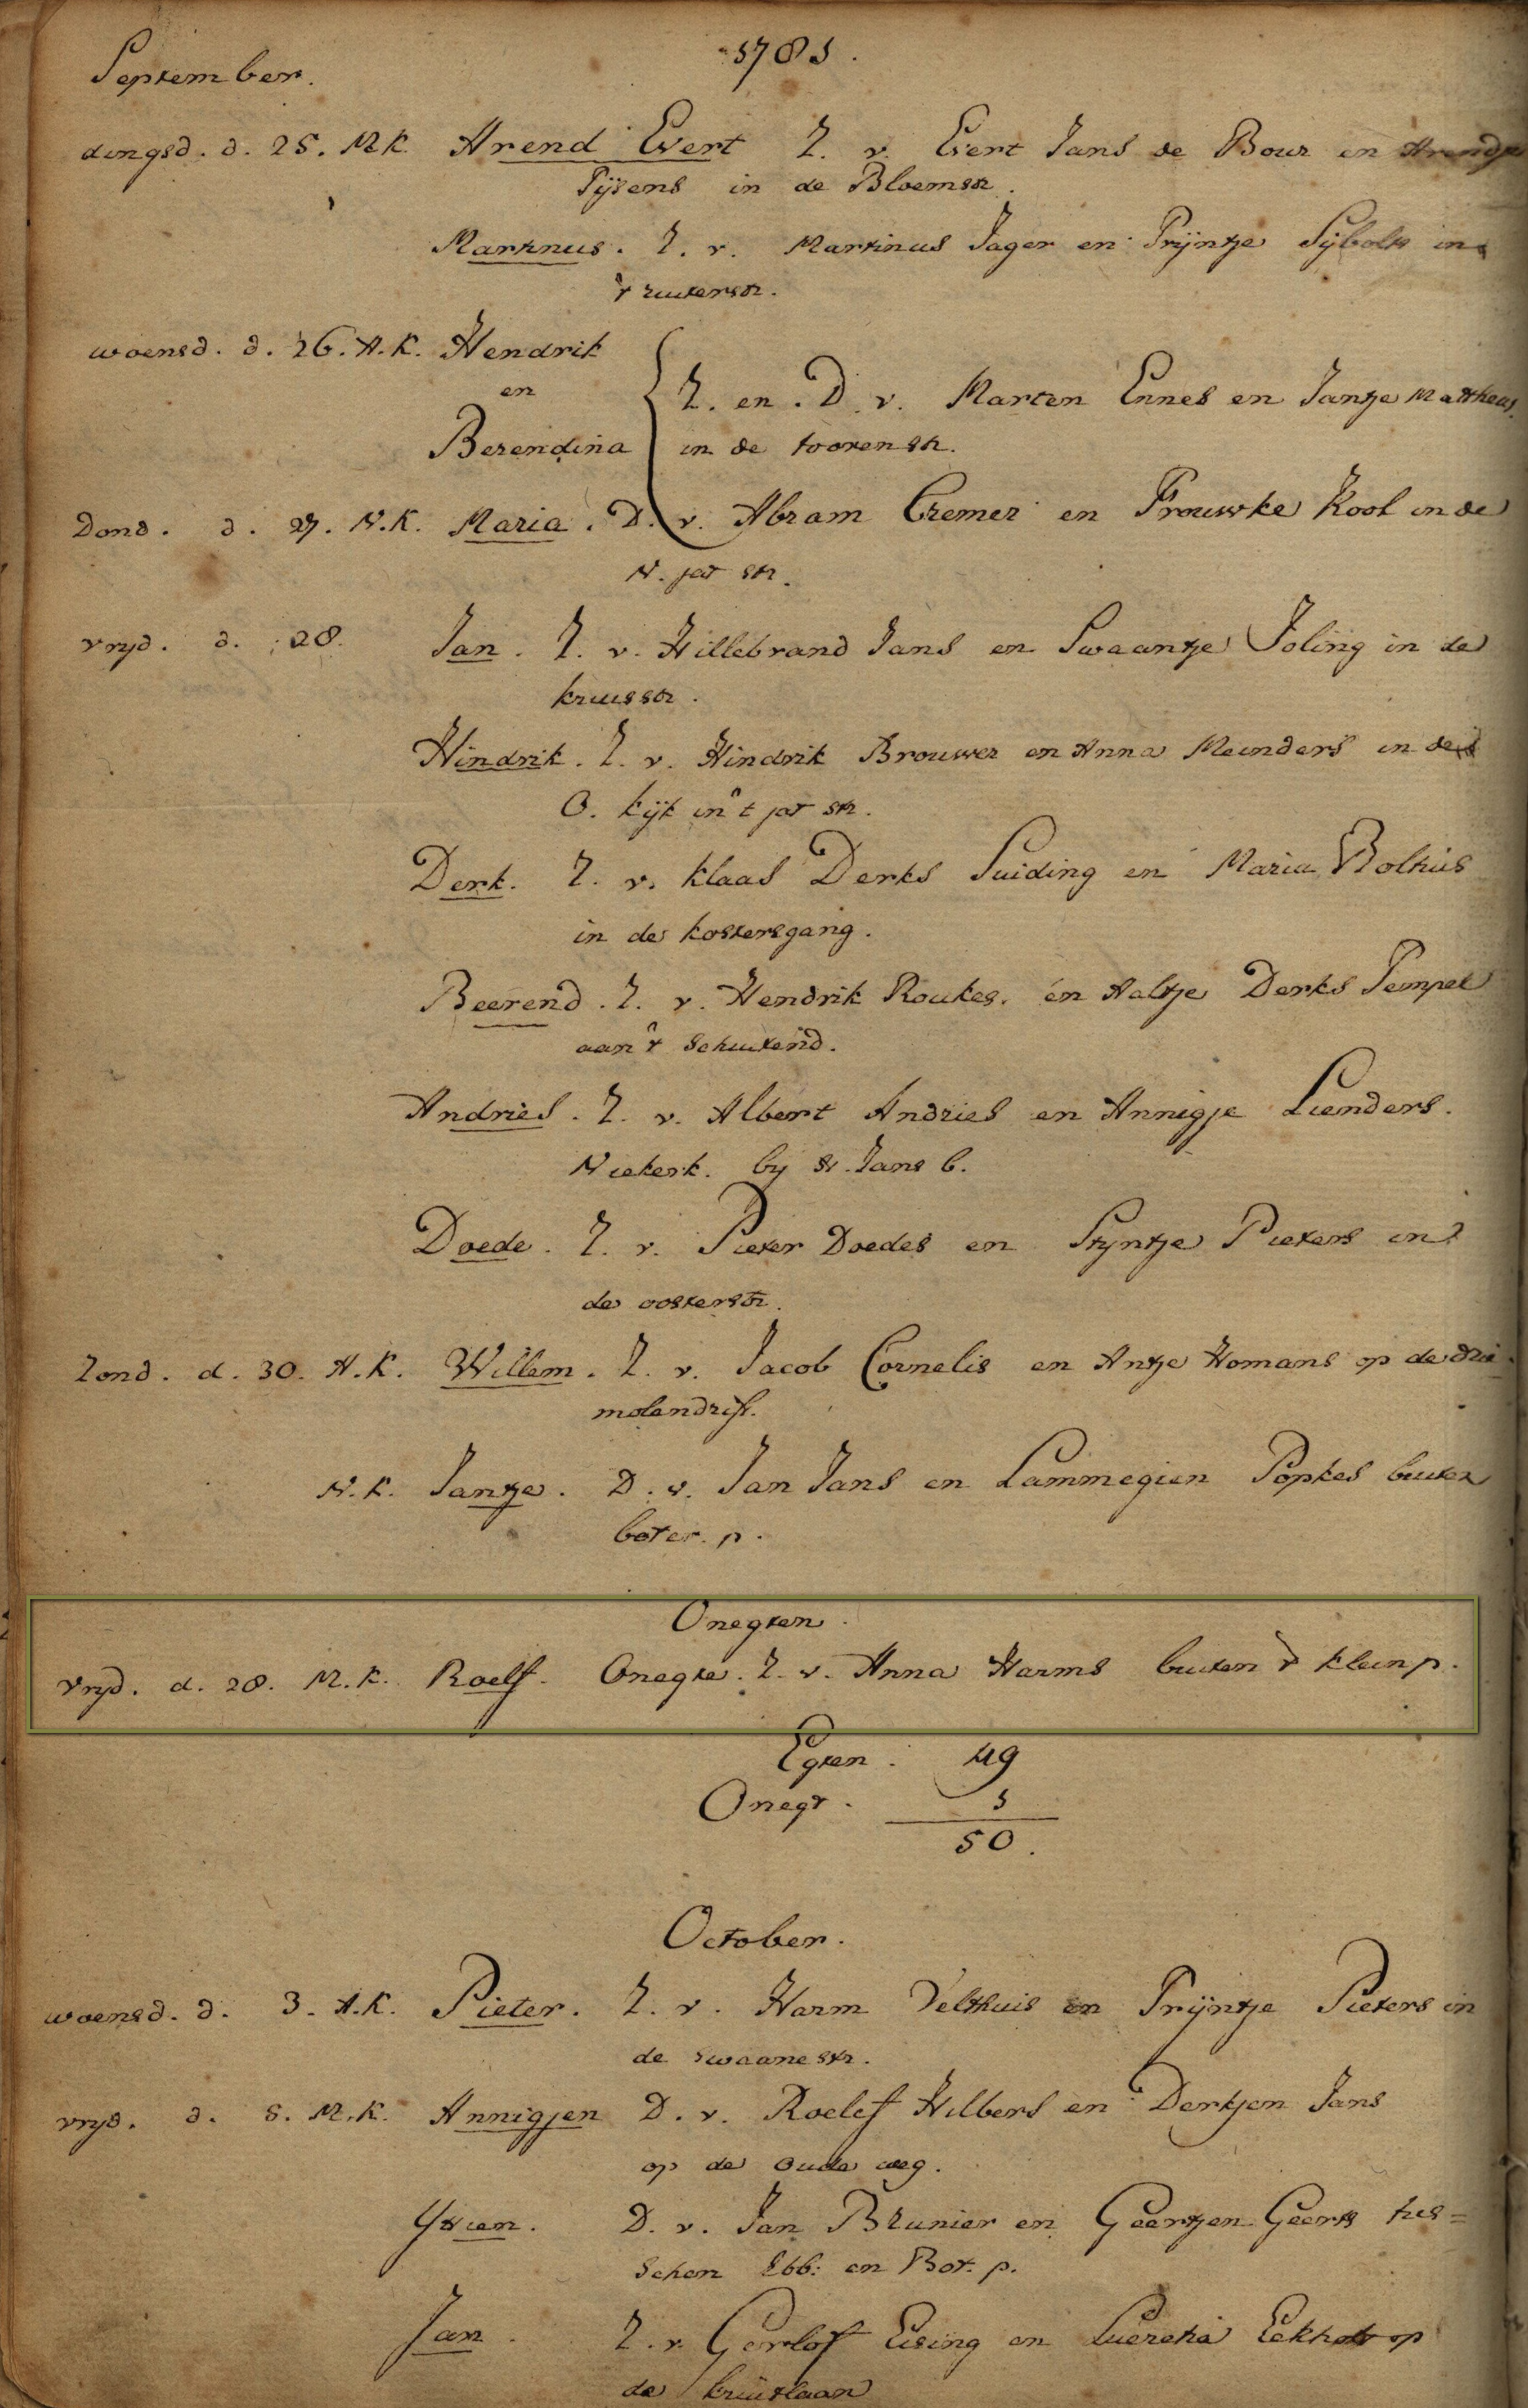 September.
1781.
dingsd. d. 25. M K. Arend Evert Z. v. Evert Jans de Bour en Arendje
Tijsens in de Bloemstr.
Martinus. Z. v. Martinus Jager en Trijntje Sijbolts in
't ruiterstr.
woensd. d. 26. A. K. Hendrik
en
Z. en. D. v. Marten Ennes en Jantje Mattheus
Berendina in de toorenstr.
Dond. d. 27. N. K. Maria. D. v. Abram Cremer en Frouwke Kool in de
N. jat str.
vryd. d. 28. Jan. Z. v. Hillebrand Jans en Swaantje Joling in de
kruisstr.
Hindrik. Z. v. Hindrik Brouwer en Anna Meinders in de
O. kijk in 't jat str.
Derk. Z. v. Klaas Derks Suiding en Maria Bolhuis
in de kostersgang.
Beerend. Z. v. Hendrik Roukes. en Aaltje Derks Tempel
aan 't Schuitend.
Andries. Z. v. Albert Andries en Annigje Lienders.
Niekerk. by St. Jans b.
Doede. Z. v. Pieter Doedes en Stijntje Pieters in
de oosterstr.
Zond. d. 30. A. K. Willem. Z. v. Jacob Cornelis en Antje Homans op de drie
molendrift.
N. K. Jantje. D. v. Jan Jans en Lammegien Popkes buiten
boter. p.
Onegten.
vryd. d. 28. M. K. Roelf. Onegte. Z. v. Anna Harms buiten 't klein p.
Egten. 49
Onegt. 1
50.
October.
woensd. d. 3. A. K. Pieter. Z. v. Harm Velthuis en Trijntje Pieters in
de Swaanestr.
vryd. d. 5. M. K. Annigjen D. v. Roelef Hilbers en Dertjen Jans
op de Oude weg.
D. v. Jan Brunier en Geertjen Geerts tus=
schen Ebb: en Bot. p.
Jan. Z. v. Gerlof Eising en Lucretia Eekholt op
de kruitlaan